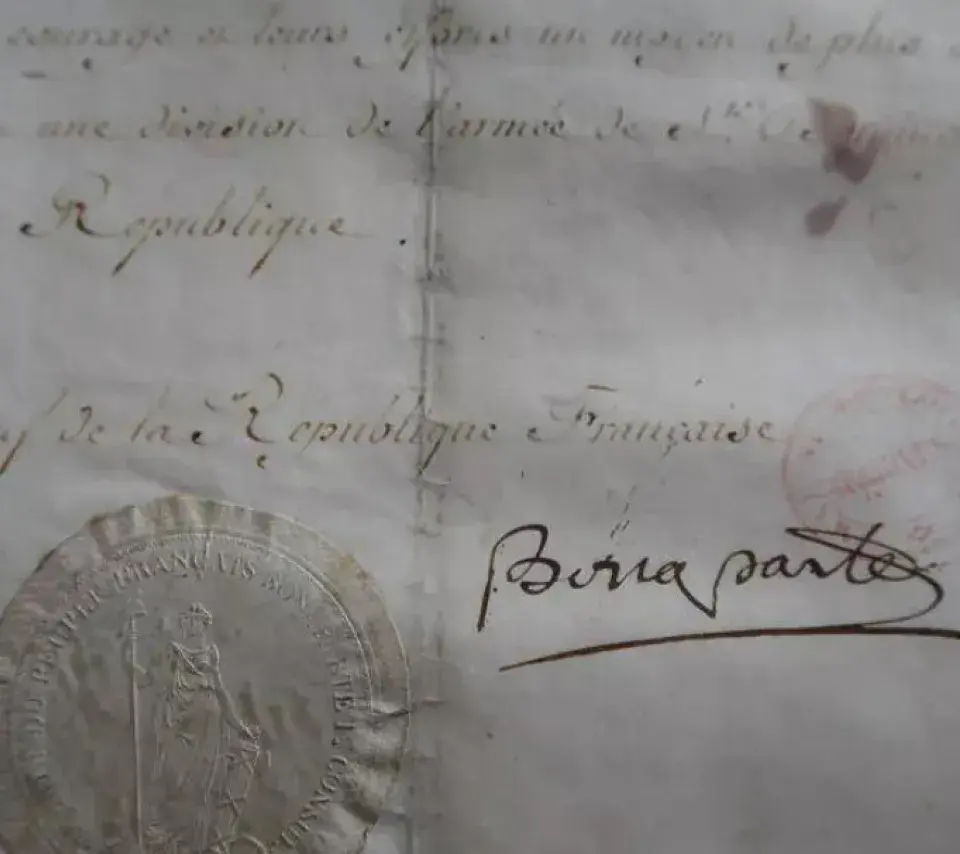 courage et leurs efforts un moyen de plus
une division de l'armée de St.
République.
de la République Française
Bonaparte
DU PEUPLE FRANÇAIS BON ETE 1. CONSUL